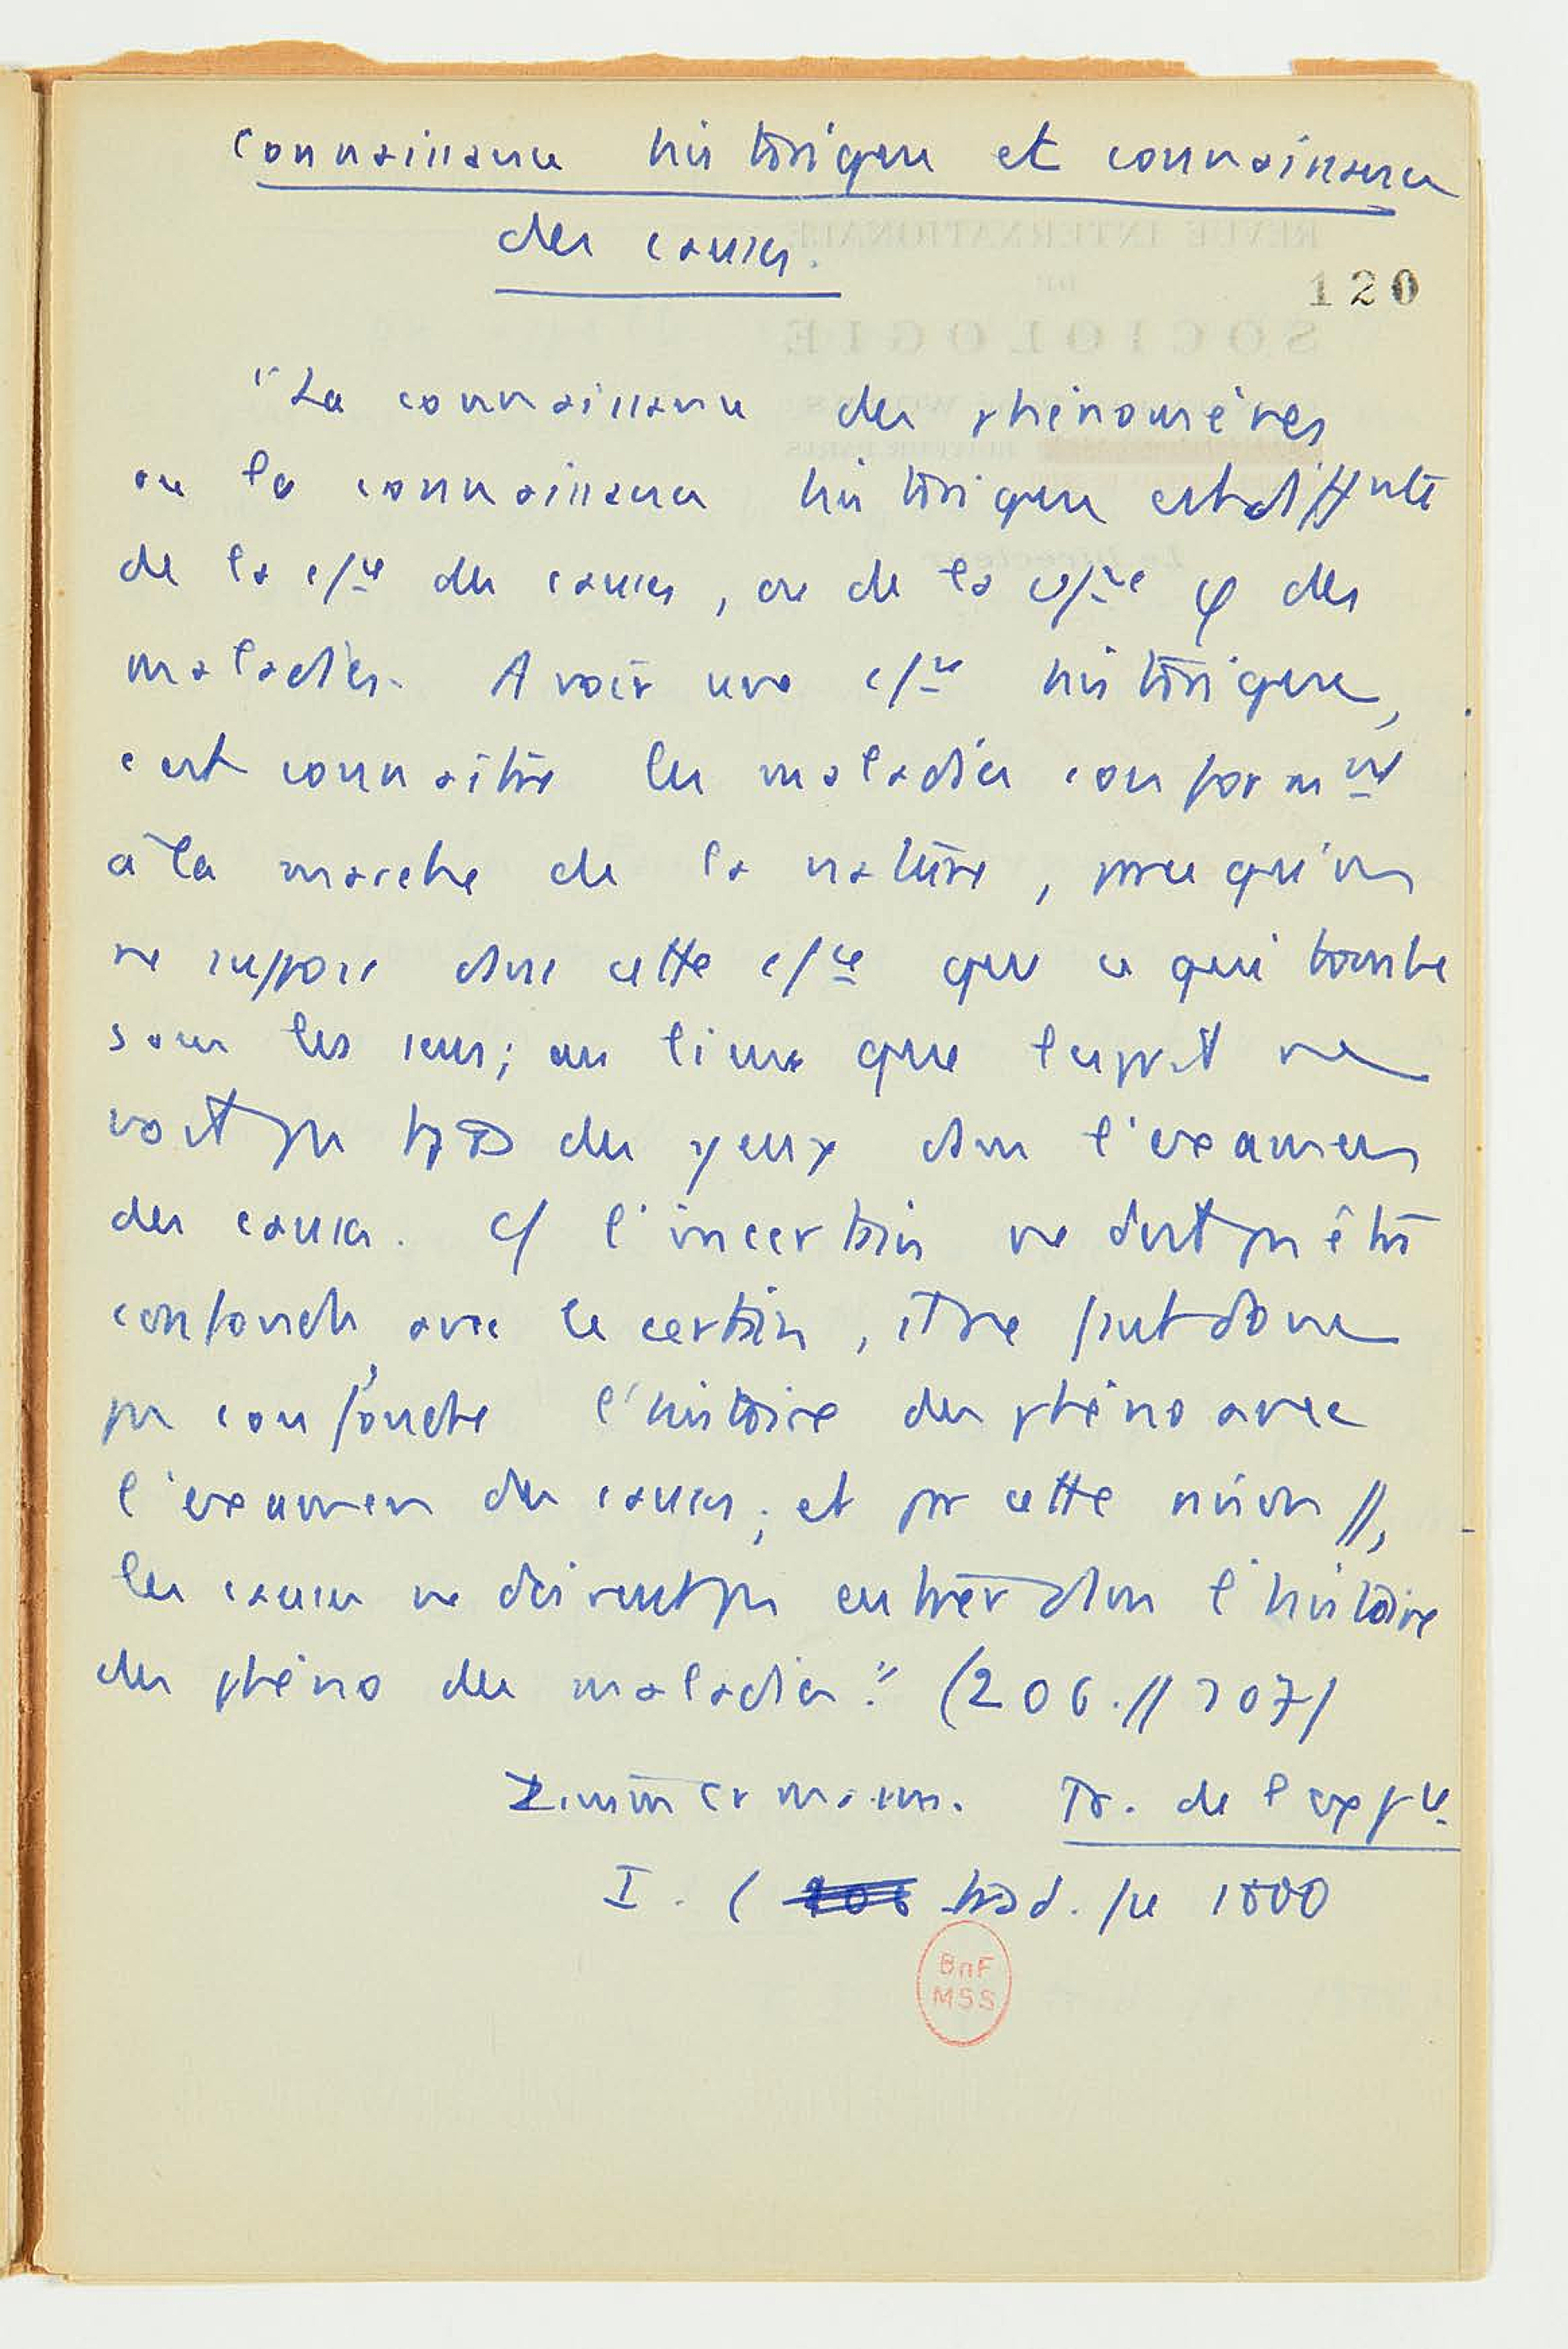 Connaissance historique et connaissance
des causes.
120
"La connaissance des phénomènes
ou la connaissance historique est diffnte
de la c/ce des causes, ou de la c/ce φ des
maladies. Avoir une c/ce historique,
c'est connaître les maladies conformnt
à la marche de la nature, pree qu'on
ne suppose dns cette c/ce que ce qui tombe
sous les sens; au lieu que l'esprit ne
voit ps des yeux dns l'examen
des causes. C/ l'incertain ne doit ps être
confondu avec le certain, il ne faut donc
ps confondre l'histoire des phéno avec
l'examen des causes; et pr cette raison //,
les causes ne doivent ps entrer dns l'histoire
des phéno des maladies." (206.//207)
Zimmermann. Tr. de l'expce
I. ( trad. fse 1800
BnF
MSS